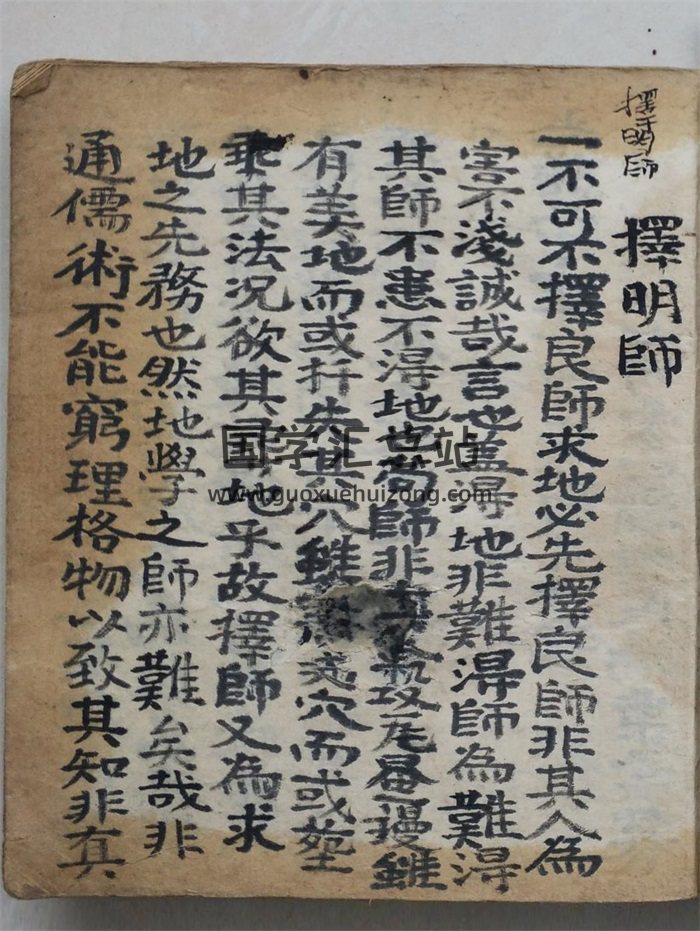 擇明師
擇明師
一不可不擇良師求地必先擇良師非其人為
害不淺誠哉言也盖得地非難得師為難得
其師不患不得地也苟師非
有美地而或扦失其穴雖 穴而或塟
乘其法況欲其尋地乎故擇師又為求
地之先務也然地學之師亦難矣哉非
通儒術不能窮理格物以致其知非有真
国学汇总站
www.guoxuehuizong.com